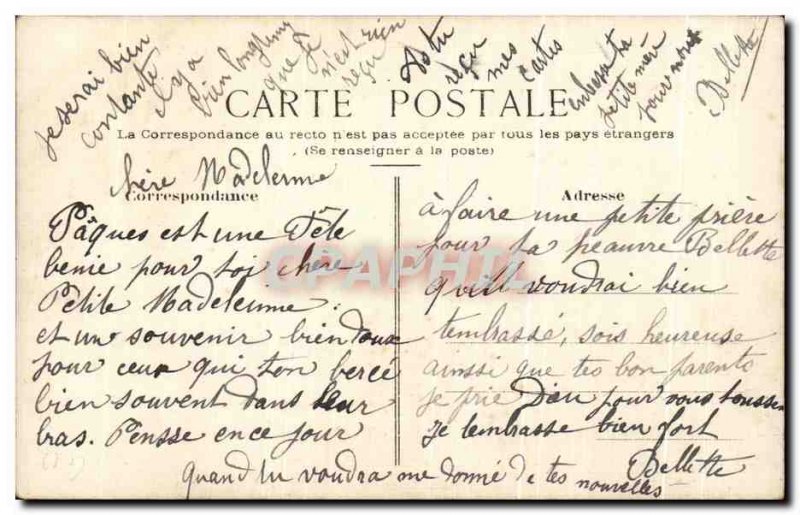 je serai bien
contante
il y a
bien longtemp
que je
n'est rien
reçu
As tu
reçu
mes
cartes
enbrasse ta
petite mère
pour nous
Bellette
CARTE POSTALE
La Correspondance au recto n'est pas acceptée par tous les pays étrangers
(Se renseigner à la poste)
Correspondance
Adresse
chère Madeleinne
Pâques est une Fête
benie pour toi chère
Petite Madeleinne :
et un souvenir bien doux
pour ceux qui ton bercé
bien souvent dans leur
bras. Pensse en ce jour
à faire une petite prière
pour ta peauvre Bellette
qu'ill voudrai bien
tembrassé, sois heureuse
ainssi que tes bon parents
je prie Dieu pour vous toussen
je tembrasse bien fort
Bellette
quand tu voudra me donné de tes nouvelles
CPAPHIL